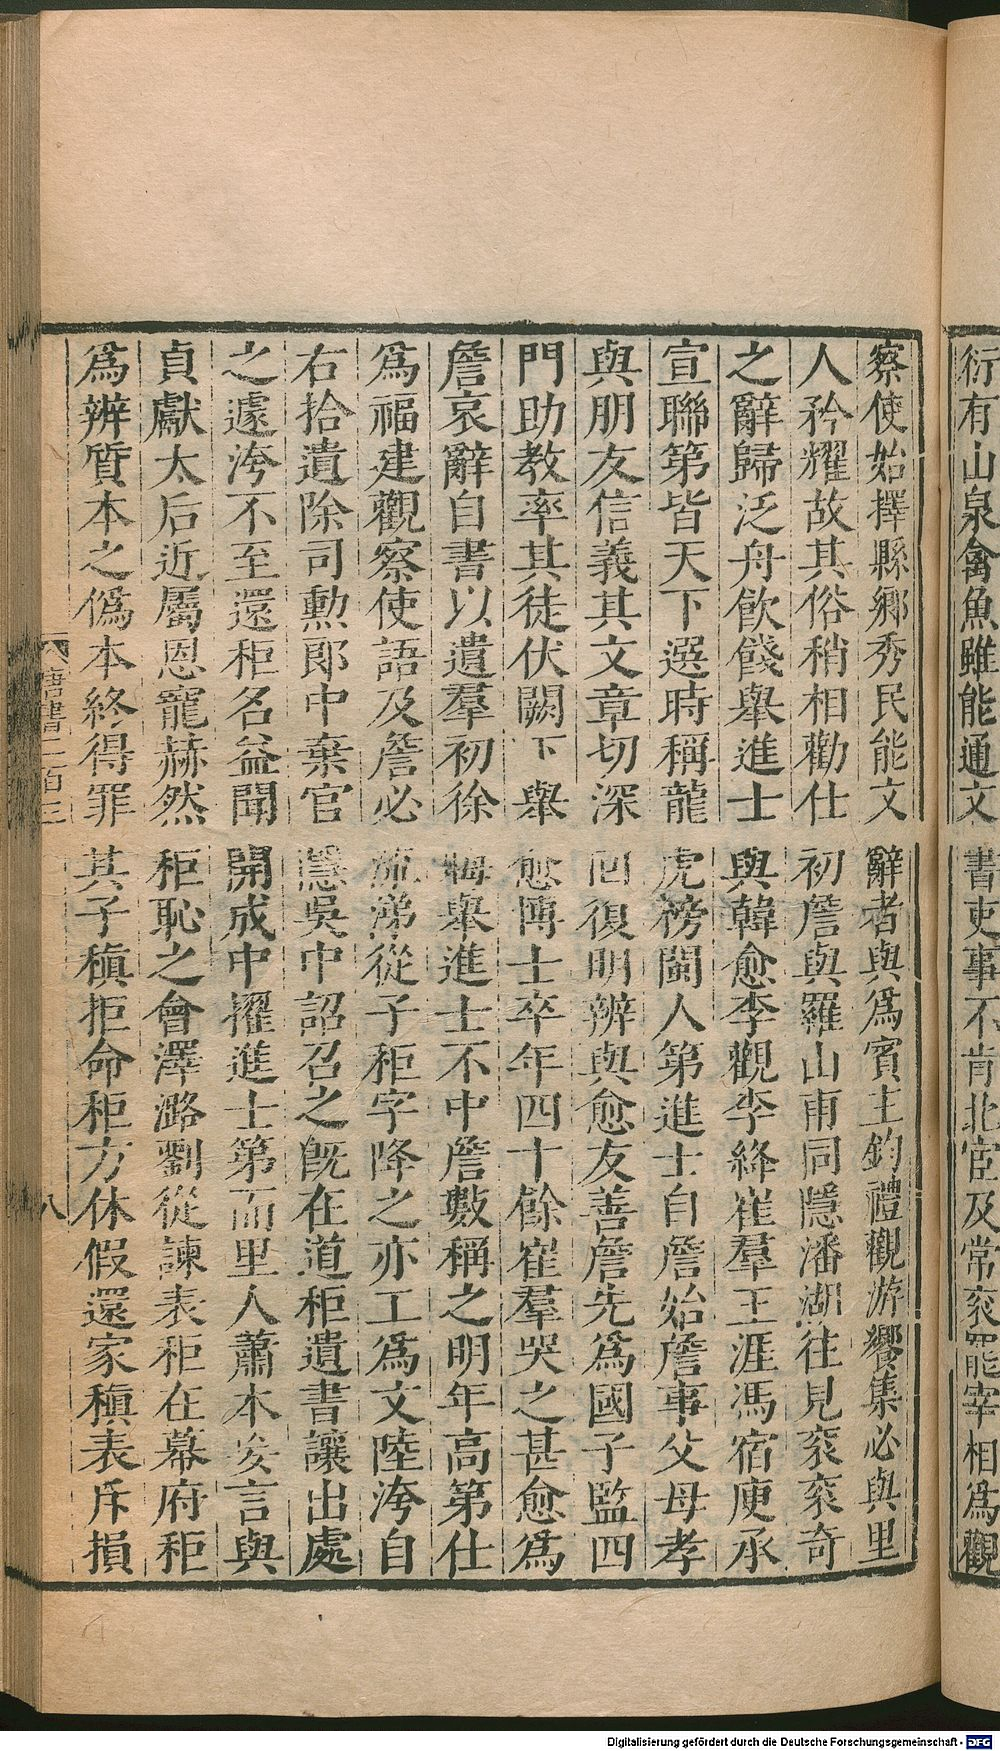 衍有山泉禽魚雖能通文書吏事不肯北宦及常袞罷宰相爲觀
察使始擇縣鄉秀民能文辭者與爲賓主鈞禮觀游饗集必與里
人矜耀故其俗稍相勸仕初詹與羅山甫同隱潘湖往見袞袞奇
之辭歸泛舟飮餞舉進士與韓愈李觀李絳崔羣王涯馮宿庾承
宣聯第皆天下選時稱龍虎榜閩人第進士自詹始詹事父母孝
與朋友信義其文章切深回復明辨與愈友善詹先爲國子監四
門助教率其徒伏闕下舉愈博士卒年四十餘崔羣哭之甚愈爲
詹哀辭自書以遺羣初徐晦舉進士不中詹數稱之明年高第仕
爲福建觀察使語及詹必流涕從子秬字降之亦工爲文陸洿自
右拾遺除司勳郎中棄官隱吳中詔召之旣在道秬遺書讓出處
之遽洿不至還秬名益聞開成中擢進士第而里人蕭本妄言與
貞獻太后近屬恩寵赫然秬恥之會澤潞劉從諫表秬在幕府秬
爲辨質本之僞本終得罪其子稹拒命秬方休假還家稹表斥損
唐書二百三
八
Digitalisierung gefördert durch die Deutsche Forschungsgemeinschaft - DFG